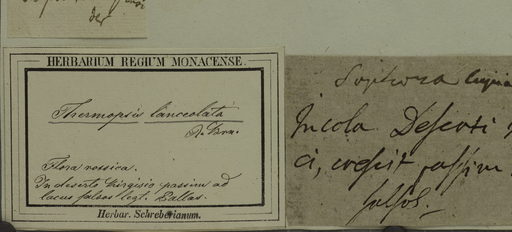 der
HERBARIUM REGIUM MONACENSE.
Thermopsis lanceolata
R. Brn.
Flora rossica.
In deserto Kirgisio passim ad
lacus salsos legt. Pallas.
Herbar. Schreberianum.
Sophora lupin
Incola Deserti
ci, crescit passim
salsos.